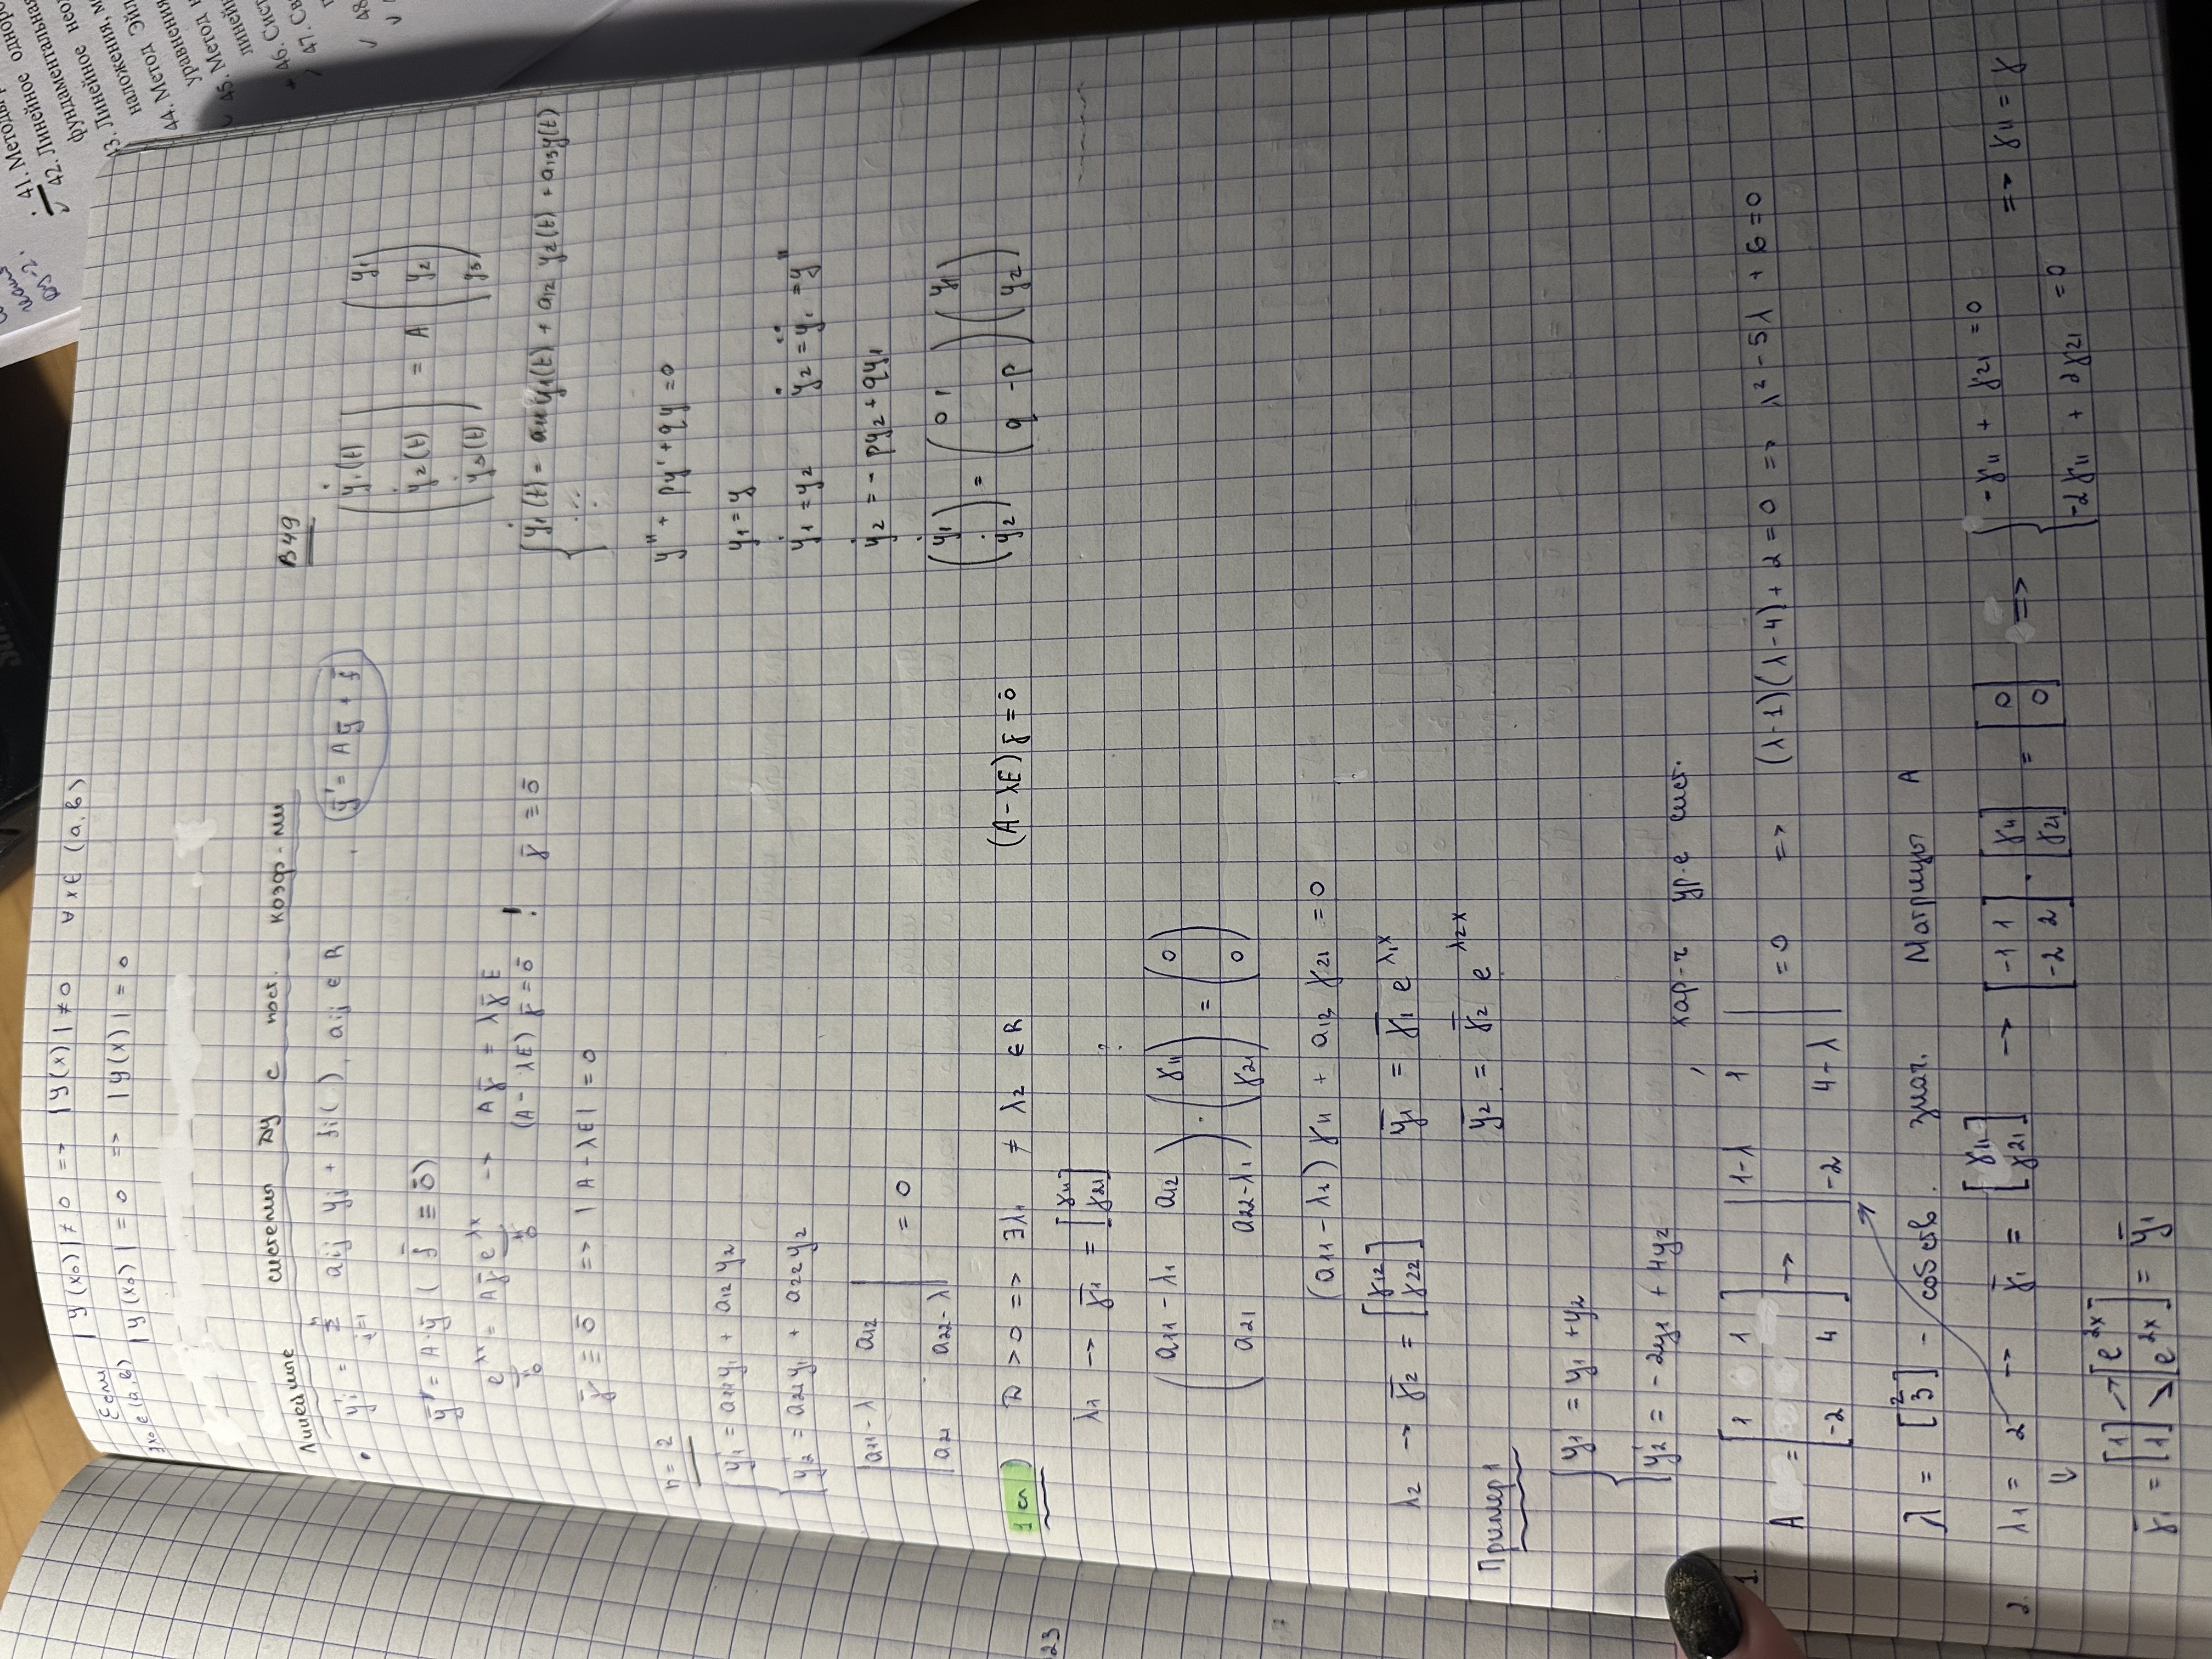 Если |Y(x₀)| ≠ 0 => |Y(x)| ≠ 0 ∀x∈ (a,b)
∃x₀ ∈ (a,b) |Y(x₀)| = 0 => |Y(x)| = 0
Линейные системы ДУ с пост. коэф-ми
• y'i = Σ aij yj + fi( ), aij ∈ R , ȳ' = Aȳ + f̄
n
j=1
ȳ' = A·ȳ ( f̄ ≡ ō)
e^λx = Aγ̄ e^λx → Aγ̄ = λγ̄ E
(A - λE) γ̄ = ō ! γ̄ ≡ ō
γ̄ ≡ ō => |A - λE| = 0
n = 2
{ y'1 = a11y1 + a12 y2
y'2 = a21y1 + a22 y2
| a11 - λ a12 |
= 0
| a21 a22 - λ |
1 сл) D > 0 => ∃λ1 ≠ λ2 ∈ R (A - λE) γ̄ = ō
λ1 → γ̄1 = [γ11
γ21]
?
( a11 - λ1 a12 ) · ( γ11 ) = ( 0 )
( a21 a22 - λ1 ) ( γ21 ) ( 0 )
(a11 - λ1) γ11 + a12 γ21 = 0
λ2 → γ̄2 = [γ12
γ22] ȳ1 = γ̄1 e^λ1x
ȳ2 = γ̄2 e^λ2x
Пример 1
{ y'1 = y1 + y2
y'2 = -2y1 + 4y2
, хар-ч ур-е сист.
1.
A = [ 1 1
-2 4 ] → | 1-λ 1
-2 4-λ | = 0 => (λ-1)(λ-4) + 2 = 0 => λ² - 5λ + 6 = 0
λ = [2
3] - собств. знач. Матрицы A
2. λ1 = 2 → γ̄1 = [γ11
γ21] → [-1 1
-2 2] · [γ11
γ21] = [0
0] => { -γ11 + γ21 = 0
-2γ11 + 2γ21 = 0 => γ11 = γ
⇓
γ̄1 = [1
1] → [e^2x
e^2x] = ȳ1
В49
( ẏ1(t)
ẏ2(t)
ẏ3(t) ) = A ( y1
y2
y3 )
{ ẏ1(t) = a11y1(t) + a12 y2(t) + a13y(t)
...
y'' + py' + qy = 0
y1 = y
ẏ1 = y2 ẏ2 = ÿ1 = y''
ẏ2 = - py2 + qy1
( ẏ1
ẏ2 ) = ( 0 1
q -p ) ( y1
y2 )
23
ДУ-2.
41. Методы
42. Линейное одноро
фундаментальная
43. Линейное нео
наложения, м
44. Метод Эйл
уравнения
45. Метод
линей
46. Сист
47. Св
48